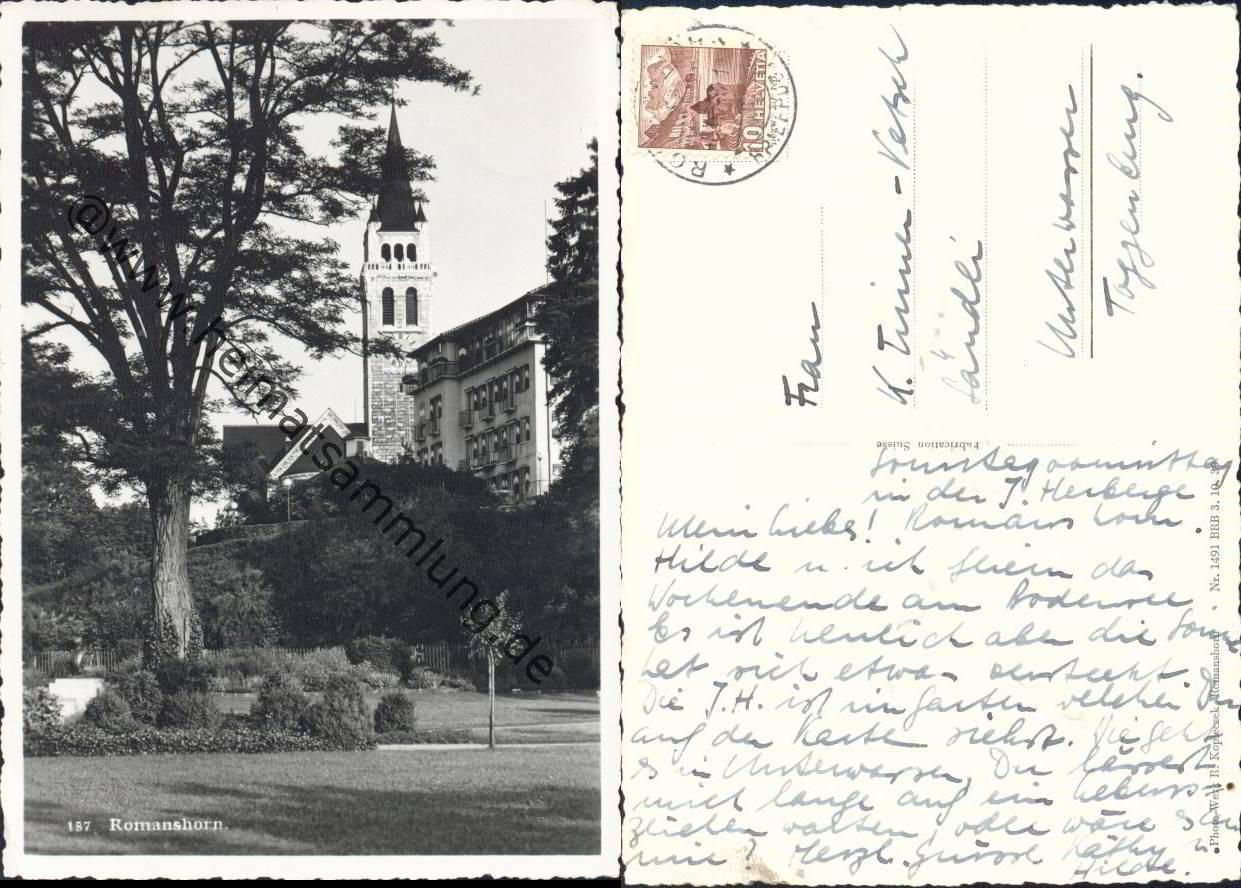 187 Romanshorn.
@www.heimatsammlung.de
10 HELVETIA
Frau
K. Trimer-Vetsch
Ländli
Unterwasser
Toggenburg.
Fabrication Suisse
Photo-Werk R. Kopieczek, Romanshorn. Nr. 1491 BRB 3. 10. 39
Sonntagvormittag
in der J. Herberge
Mein Liebes! Romanshorn.
Hilde u. ich feiern das
Wochenende am Bodensee
Es ist herrlich aber die Sonne
hat sich etwas versteckt.
Die J.H. ist im Garten welchen Du
auf der Karte siehst. Wie geht
es in Unterwasser, Du lässest
mich lange auf ein Lebens-
zeichen warten, oder wäre es an
mir? Herzl. Grüsse Käthy u
Hilde.